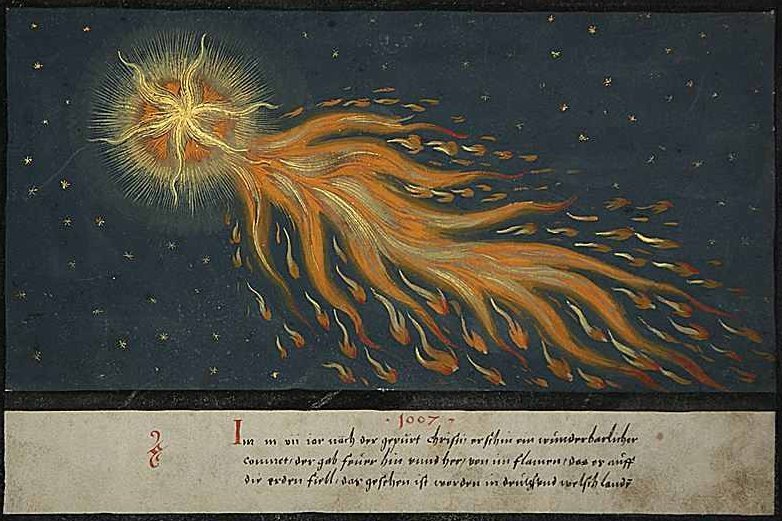 · 1007 ·
Im m vii iar nach der gepurt Christi erschin ein wunderbarlicher
comnet, der gab feuer hin unnd her, von im flamen, das er auff
die erden fiell, das gesehen ist worden in deutsch und welsch landt